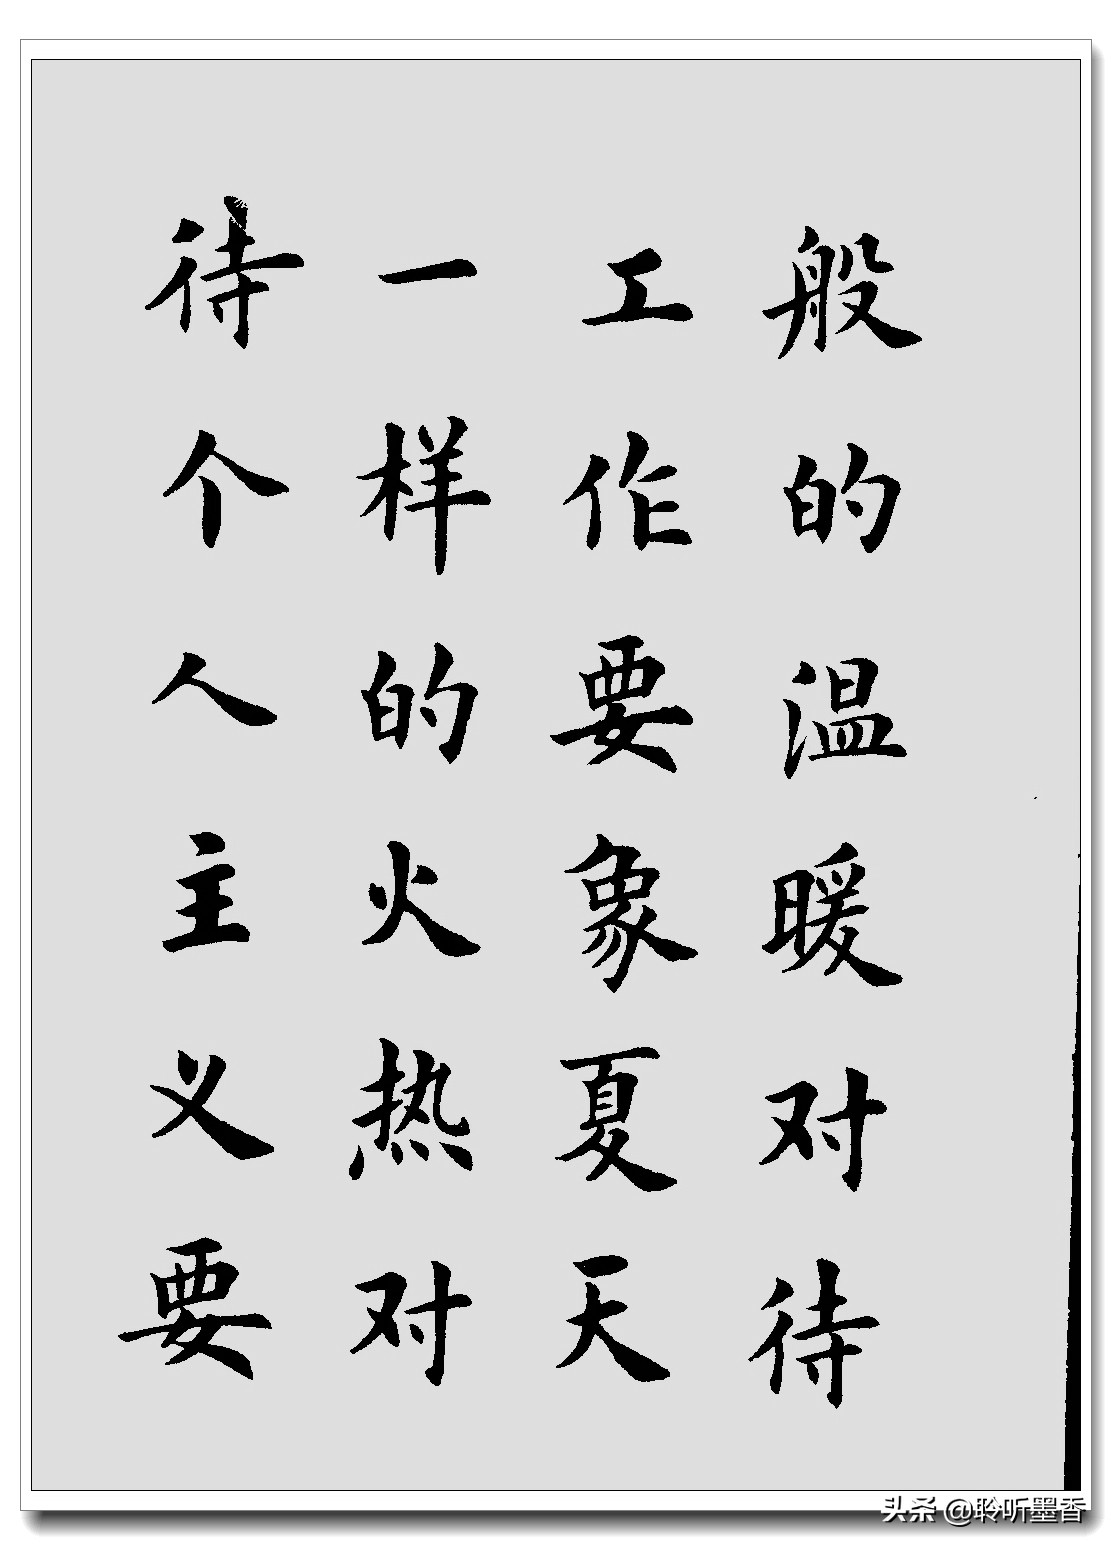 般的温暖对待
工作要象夏天
一样的火热对
待个人主义要
头条 @聆听墨香